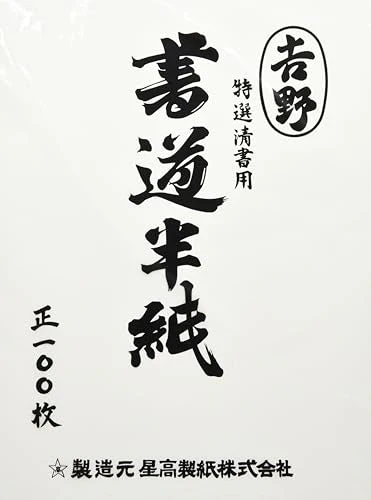 𠮷野
特選清書用
書道半紙
正一〇〇枚
製造元 星高製紙株式会社